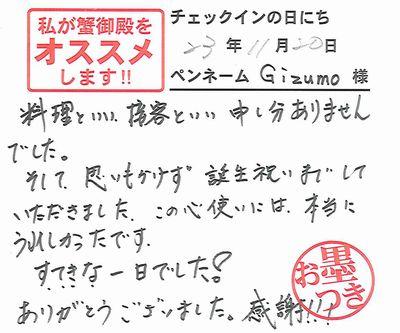 私が蟹御殿を
オススメ
します!!
チェックインの日にち
23年11月20日
ペンネーム Gizumo 様
料理といい、接客といい 申し分ありません
でした。
そして、思いもかけず 誕生祝いまでして
いただきました、この心使いには、本当に
うれしかったです.
すてきな一日でした!
ありがとうございました。感謝!!!
お墨
つき